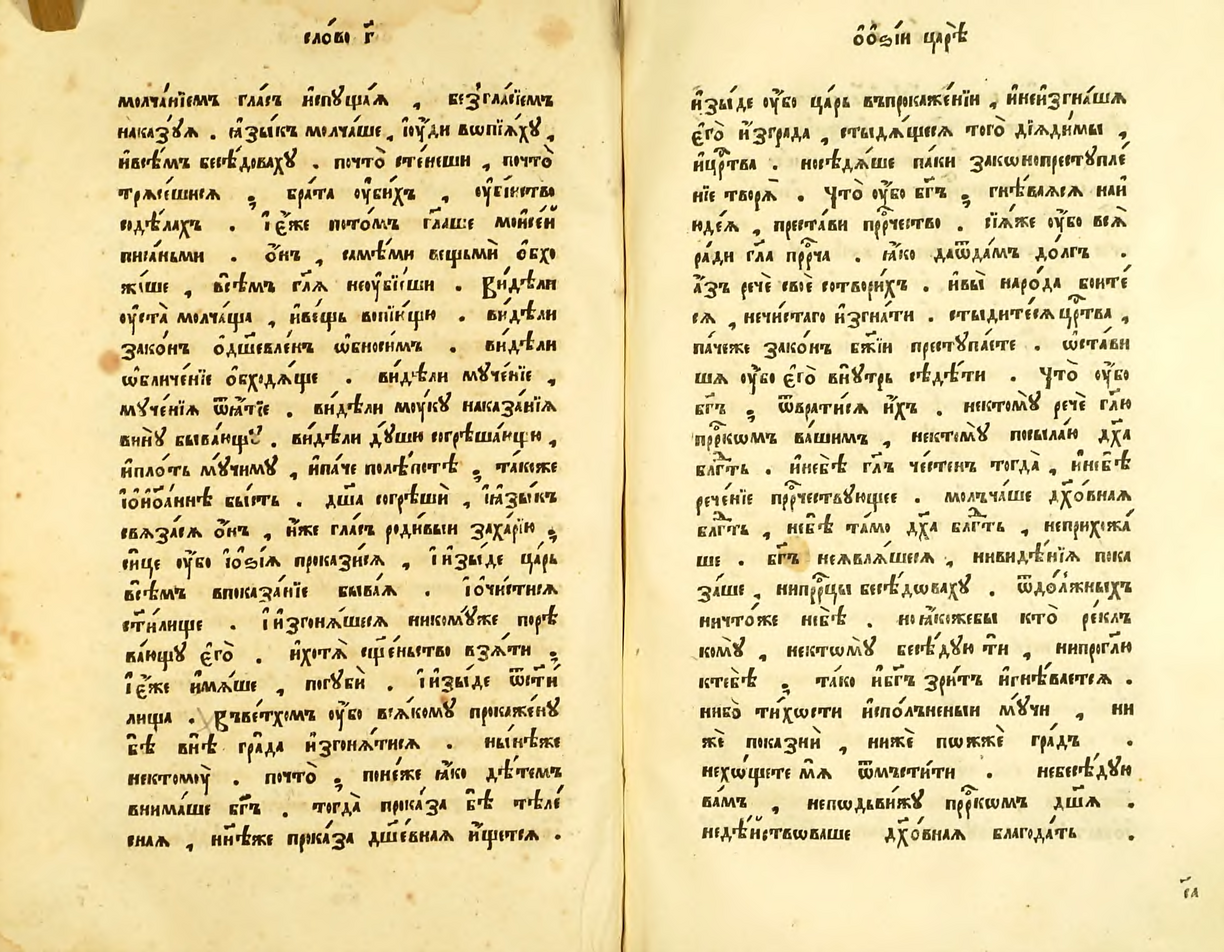 сло́во г҃
молча́нїемъ гла́съ и҆спꙋща́ѧ , безгла́сїемъ
наказꙋѧ . ꙗ҆зы́къ молча́ше , і҆ꙋ́ди вопїѧ́хꙋ ,
и҆всѣ́мъ бесѣ́довахꙋ . почто̀ сте́неши , почто̀
трѧсе́шисѧ ; бра́та ᲂу҆би́хъ , ᲂу҆бі́иство
содѣ́лахъ . і҆є҆́же пото́мъ гл҃аше моисе́й
писа́ньми . ѻ҆́нъ , самѣ́ми вещьмѝ ѻ҆бхо
жа́ше , всѣ́мъ гл҃ѧ неᲂу҆бїе́ши . Ви́дѣли
ᲂу҆ста̀ молча́ща , и҆ве́щь вопїю́щю . ви́дѣли
зако́нъ ѻ҆дш҃евле́нъ ѡ҆бноси́мъ . ви́дѣли
ѡ҆бличе́нїе ѻ҆бходѧ́ще . ви́дѣли мꙋче́нїе ,
мꙋче́нїѧ ѿѧ́тїе . ви́дѣли мо́ꙋкꙋ наказа́нїѧ
винꙋ̀ быва́ющꙋ . ви́дѣли дꙋ́ши согрѣша́ющю ,
и҆пло́ть мꙋ́чимꙋ , и҆па́че полѣ́потѣ ; та́коже
і҆ѻ҆и҆ѻа́ннѣ бы́сть . дш҃а согрѣшѝ , і҆ꙗ҆зы́къ
свѧза́сѧ ѻ҆́нъ , и҆́же гла́съ роди́выи заха́рїю ;
си́це ᲂу҆́бо і҆ѻ҆́сїѧ прокази́сѧ , і҆изы́де ца́рь
всѣ́мъ впоказа́нїе быва́ѧ . і҆ѻчи́стисѧ
ст҃и́лище . і҆изгонѧ́шесѧ никомꙋ́же порѣ
ва́ющꙋ є҆го̀ . и҆хотѧ̀ сщ҃е́ньство взѧ́ти ;
і҆є҆́же и҆мѧ́ше , погꙋбѝ . і҆изы́де ѿст҃и
лища . Въве́тхомъ ᲂу҆́бо всѧ́комꙋ прокаже́нꙋ
бѣ̀ внѣ̀ гра́да и҆згонѧ́тисѧ . ны́нѣже
нектомоꙋ̀ . почто̀ ; поне́же ꙗ҆́ко дѣ́темъ
внима́ше бг҃ъ . тогда̀ прока́за бѣ̀ тѣле́
снаѧ , нн҃ѣже прока́за дш҃е́внаѧ и҆́щетсѧ .
ѻ҆ѻ҆сі́и царѣ̀
и҆зы́де ᲂу҆́бо ца́рь въпрокаже́нїи , и҆неи҆згна́шѧ
є҆го̀ и҆зграда , стыдѧ́щесѧ того̀ дїѧди́мы ,
и҆црⷭ҇тва . носѣдѧ́ше па́ки зако́нопреступле́
нїе творѧ̀ . Что̀ ᲂу҆́бо бг҃ъ ; гнѣ́ваѧсѧ наи
ꙋде́ѧ , преста́ви прⷪ҇рчество . сїѧ́же ᲂу҆́бо всѧ̀
ра́ди гл҃а прⷪ҇рча . ꙗ҆́ко даѿда́мъ до́лгъ .
а҆́зъ речѐ своѐ сотвори́хъ . и҆вы̀ наро́да боите́
сѧ , нечи́стаго и҆згна́ти . стыди́тесѧ црⷭ҇тва ,
па́чеже зако́нъ бж҃їи преступа́ете . ѡ҆ста́ви
шѧ ᲂу҆́бо є҆го̀ внꙋ́трь сѣдѣ́ти . Что̀ ᲂу҆́бо
бг҃ъ ; ѿврати́сѧ и҆́хъ . нектомꙋ̀ речѐ гл҃ю
прⷪ҇ркомъ ва́шимъ , нектомꙋ̀ посыла́ю дх҃а
блгⷣть . и҆небѣ̀ гл҃ъ че́стенъ тогда̀ , и҆небѣ̀
рече́нїе прⷪ҇рчествꙋющее . молъча́ше дх҃о́внаѧ
блгⷣть , небѣ̀ та́мо дх҃а блгⷣть , неприхожа́
ше . бг҃ъ неѧвлѧ́шесѧ , нивидѣ́нїѧ пока
за́ше , нипрⷪ҇рцы бесѣ́довахꙋ . ѿдо́лжныхъ
ничто́же небѣ̀ . ноꙗ҆́кожебы кто̀ ре́клъ
комꙋ̀ , нектѡмꙋ̀ бесѣ́дꙋю ти , нипрогл҃ю
ктебѣ̀ ; та́ко и҆бг҃ъ зри́тъ и҆гнѣ́ваетсѧ .
нибо̀ ти́хѡсти и҆спо́лъненыи мꙋ́чи , ни
жѐ показнѝ , нижѐ пѡжжѐ гра́дъ .
нехо́щете мѧ̀ ѿмъсти́ти . небесѣ́дꙋю
ва́мъ , непѡдьви́жꙋ прⷪ҇ркомъ дш҃ѧ .
недѣ́йствѡваше дх҃о́внаѧ благода́ть .
с҃а